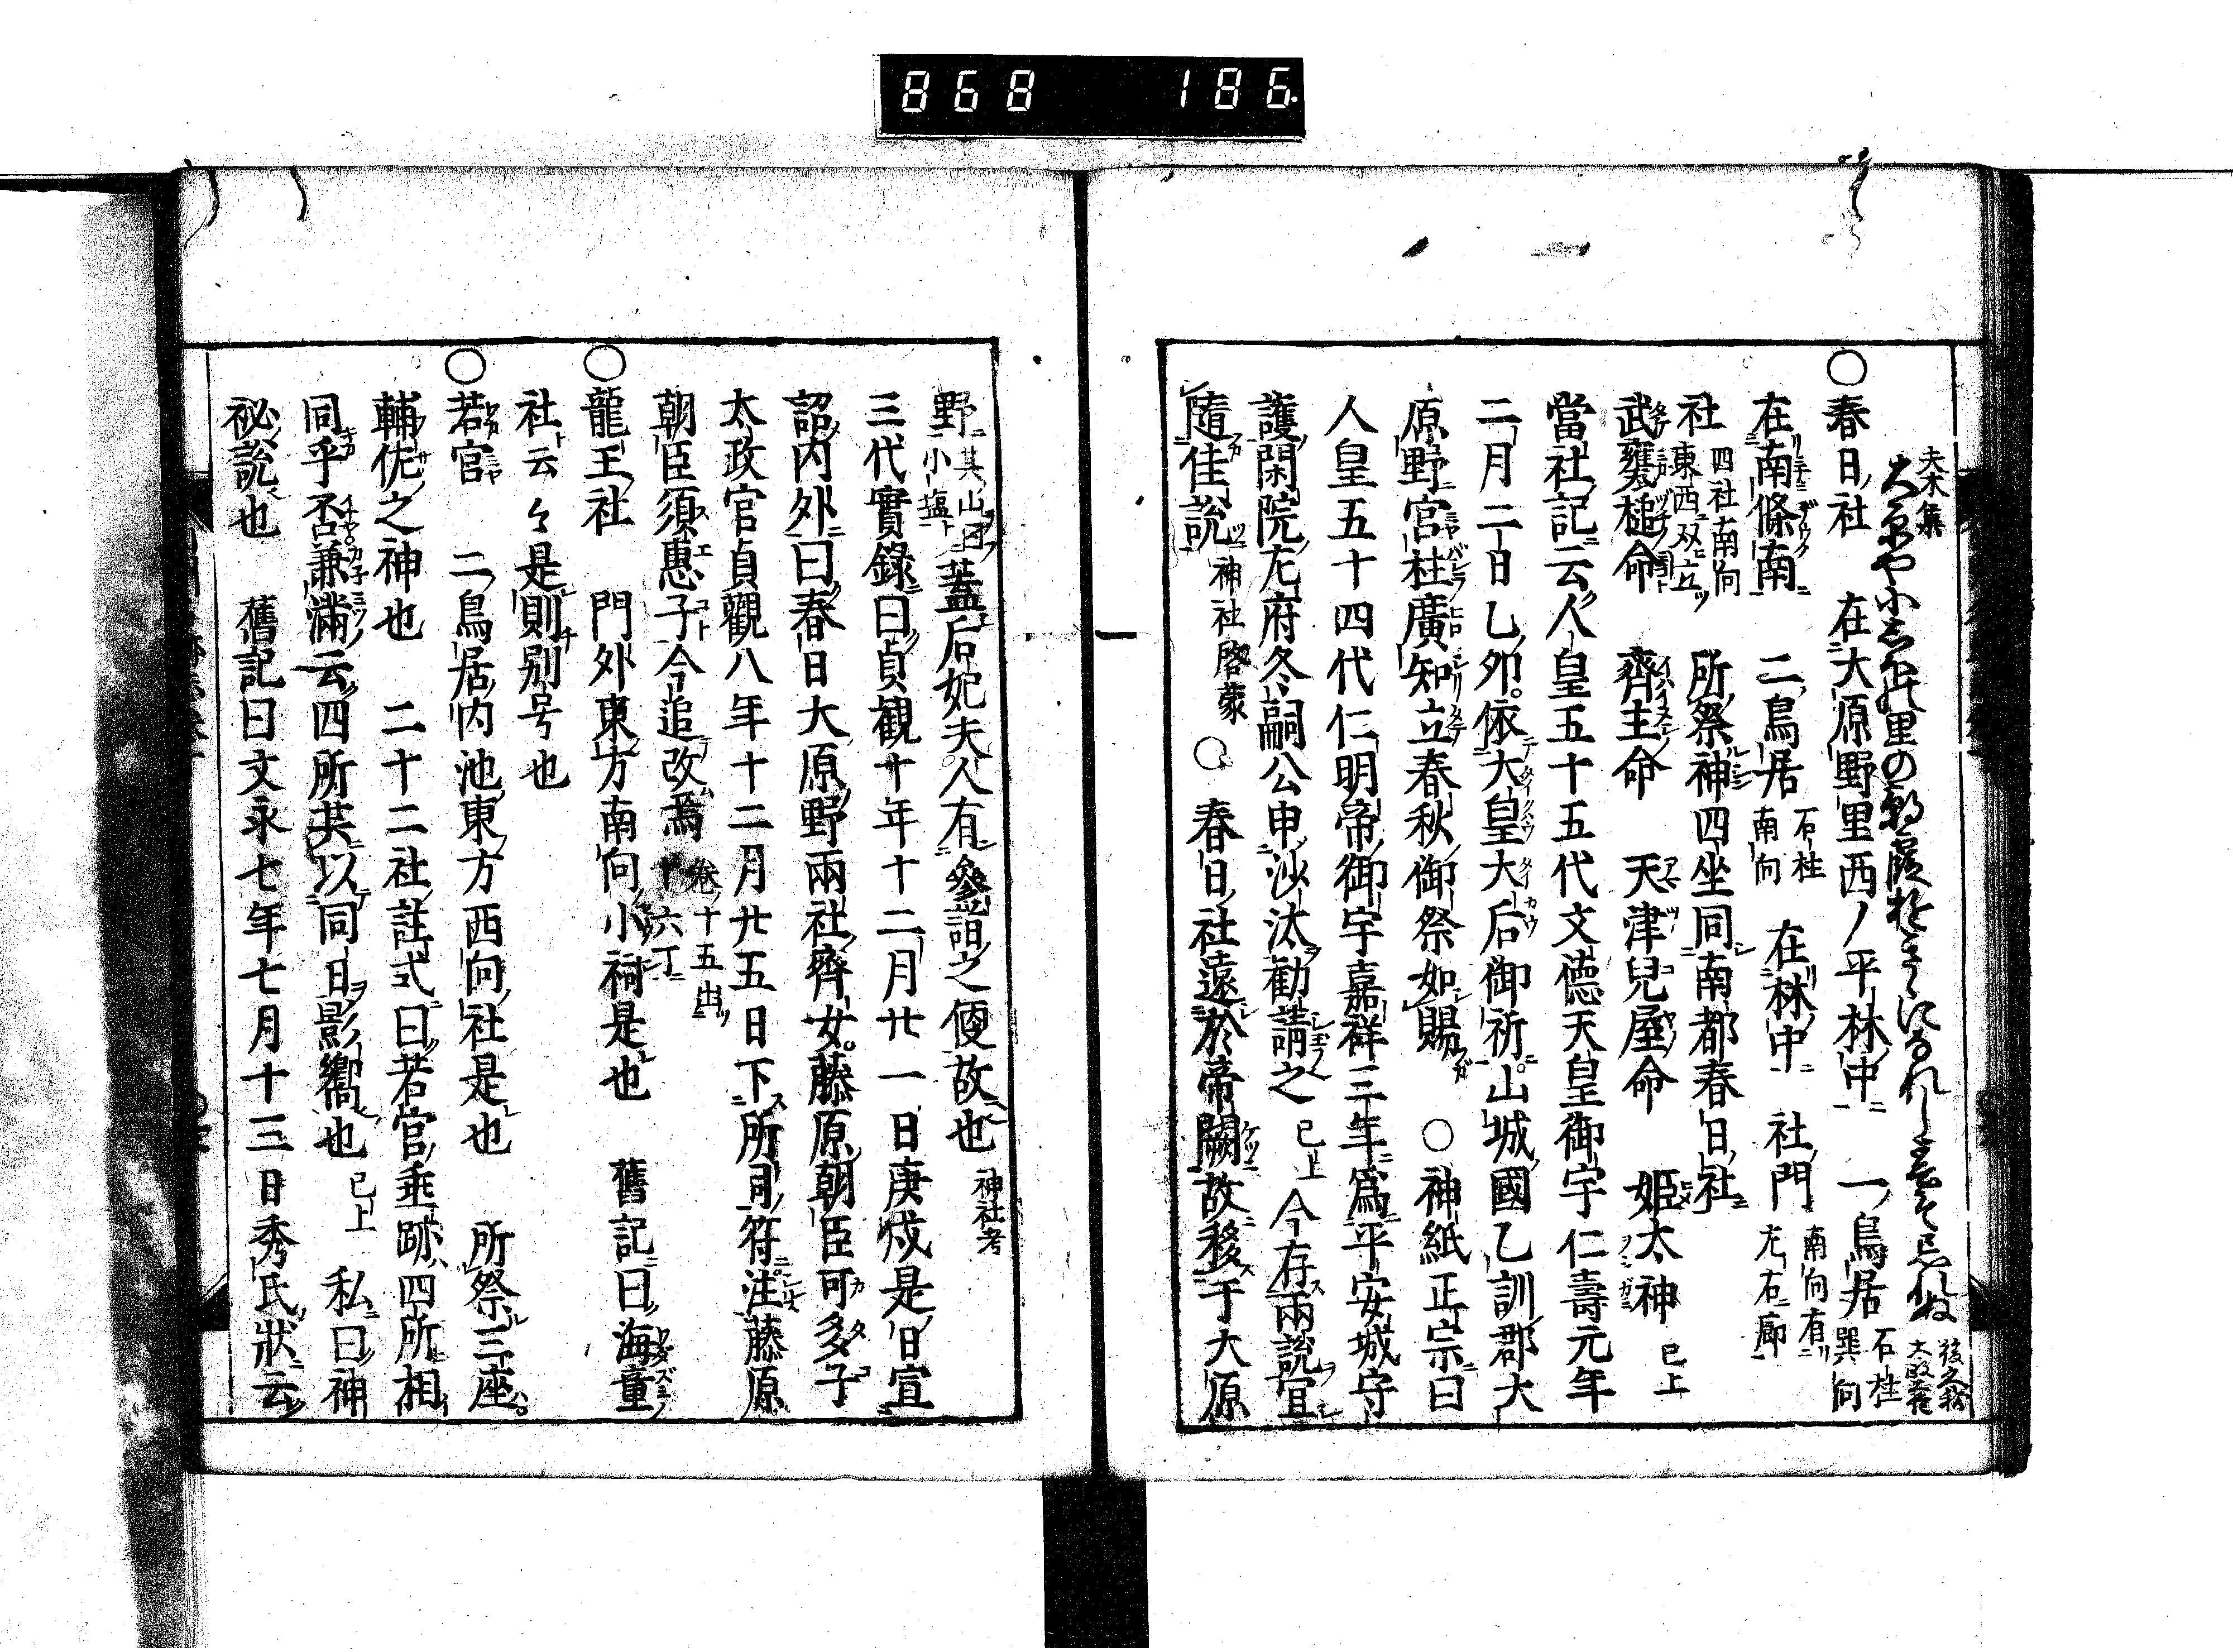 868 186
夫木集
大原や小しほの里の
後久我太政大臣
○春日社 在大原野里西ノ平林中 一鳥居 石柱巽向
在南條南 二鳥居 石柱南向 在林中 社門 南向有左右廊
社 四社南向東西双立 所祭神四坐同南都春日社
武甕槌命 齊主命 天津兒屋命 姫太神 已上
當社記云人皇五十五代文德天皇御宇仁壽元年
二月二日乙卯依大皇大后御祈山城國乙訓郡大
原野宮柱廣知立春秋御祭如賜 ○神紙正宗曰
人皇五十四代仁明帝御宇嘉祥三年爲平安城守
護閑院左府冬嗣公申沙汰勸請之 已上 今存兩說宜
隨佳說 神社啓蒙 ○春日社遠於帝闕故移于大原
野 其山曰小塩 蓋后妃夫人有參詣之便故也 神社考
三代實錄曰貞観十年十二月廿一日庚戌是日宣
詔内外曰春日大原野兩社齊女藤原朝臣可多子
太政官貞觀八年十二月廿五日下所司符注藤原
朝臣須惠子今追改焉 卷十五出十六丁
○龍王社 門外東方南向小祠是也 舊記曰海童
社云々是則別号也
○若宮 二鳥居内池東方西向社是也 所祭三座
輔佐之神也 二十二社註式曰若宮垂跡四所相
同乎否兼滿云四所其以同日影嚮也 已上 私曰神
祕說也 舊記曰文永七年七月十三日秀氏狀云